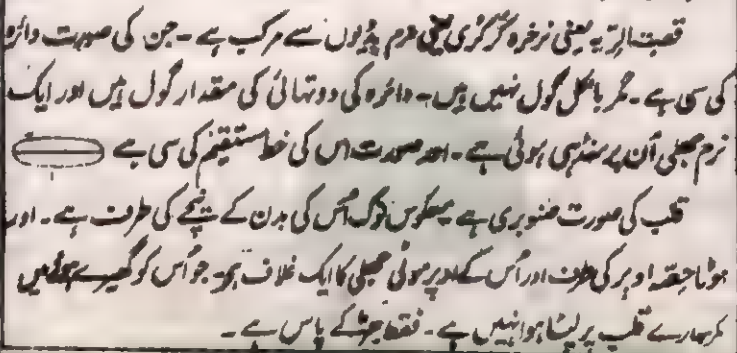 قصبۃ الریہ یعنی نرخرہ کُرکُری یعنی نرم ہڈیوں سے مرکب ہے ۔ جن کی صورت دائرہ
کی سی ہے ۔ مگر بالکل گول نہیں ہیں ۔ دائرہ کی دو تہائی کی مقدار گول ہیں اور ایک
نرم جھلی اُن پر منڈہی ہوئی ہے ۔ اور صورت اس کی خط مستقیم کی سی ہے
قلب کی صورت صنوبری ہے معکوس نوک اُس کی بدن کے نیچے کی طرف ہے ۔ اور
موٹا حصّہ اوپر کی طرف اور اُس کے اوپر موٹی جھلی کا ایک غلاف ہو جو اُس کو گھیرے ہوئے ہیں
مگر سارے قلب پر لپٹا ہوا نہیں ہے ۔ فقط جڑ کے پاس ہے ۔